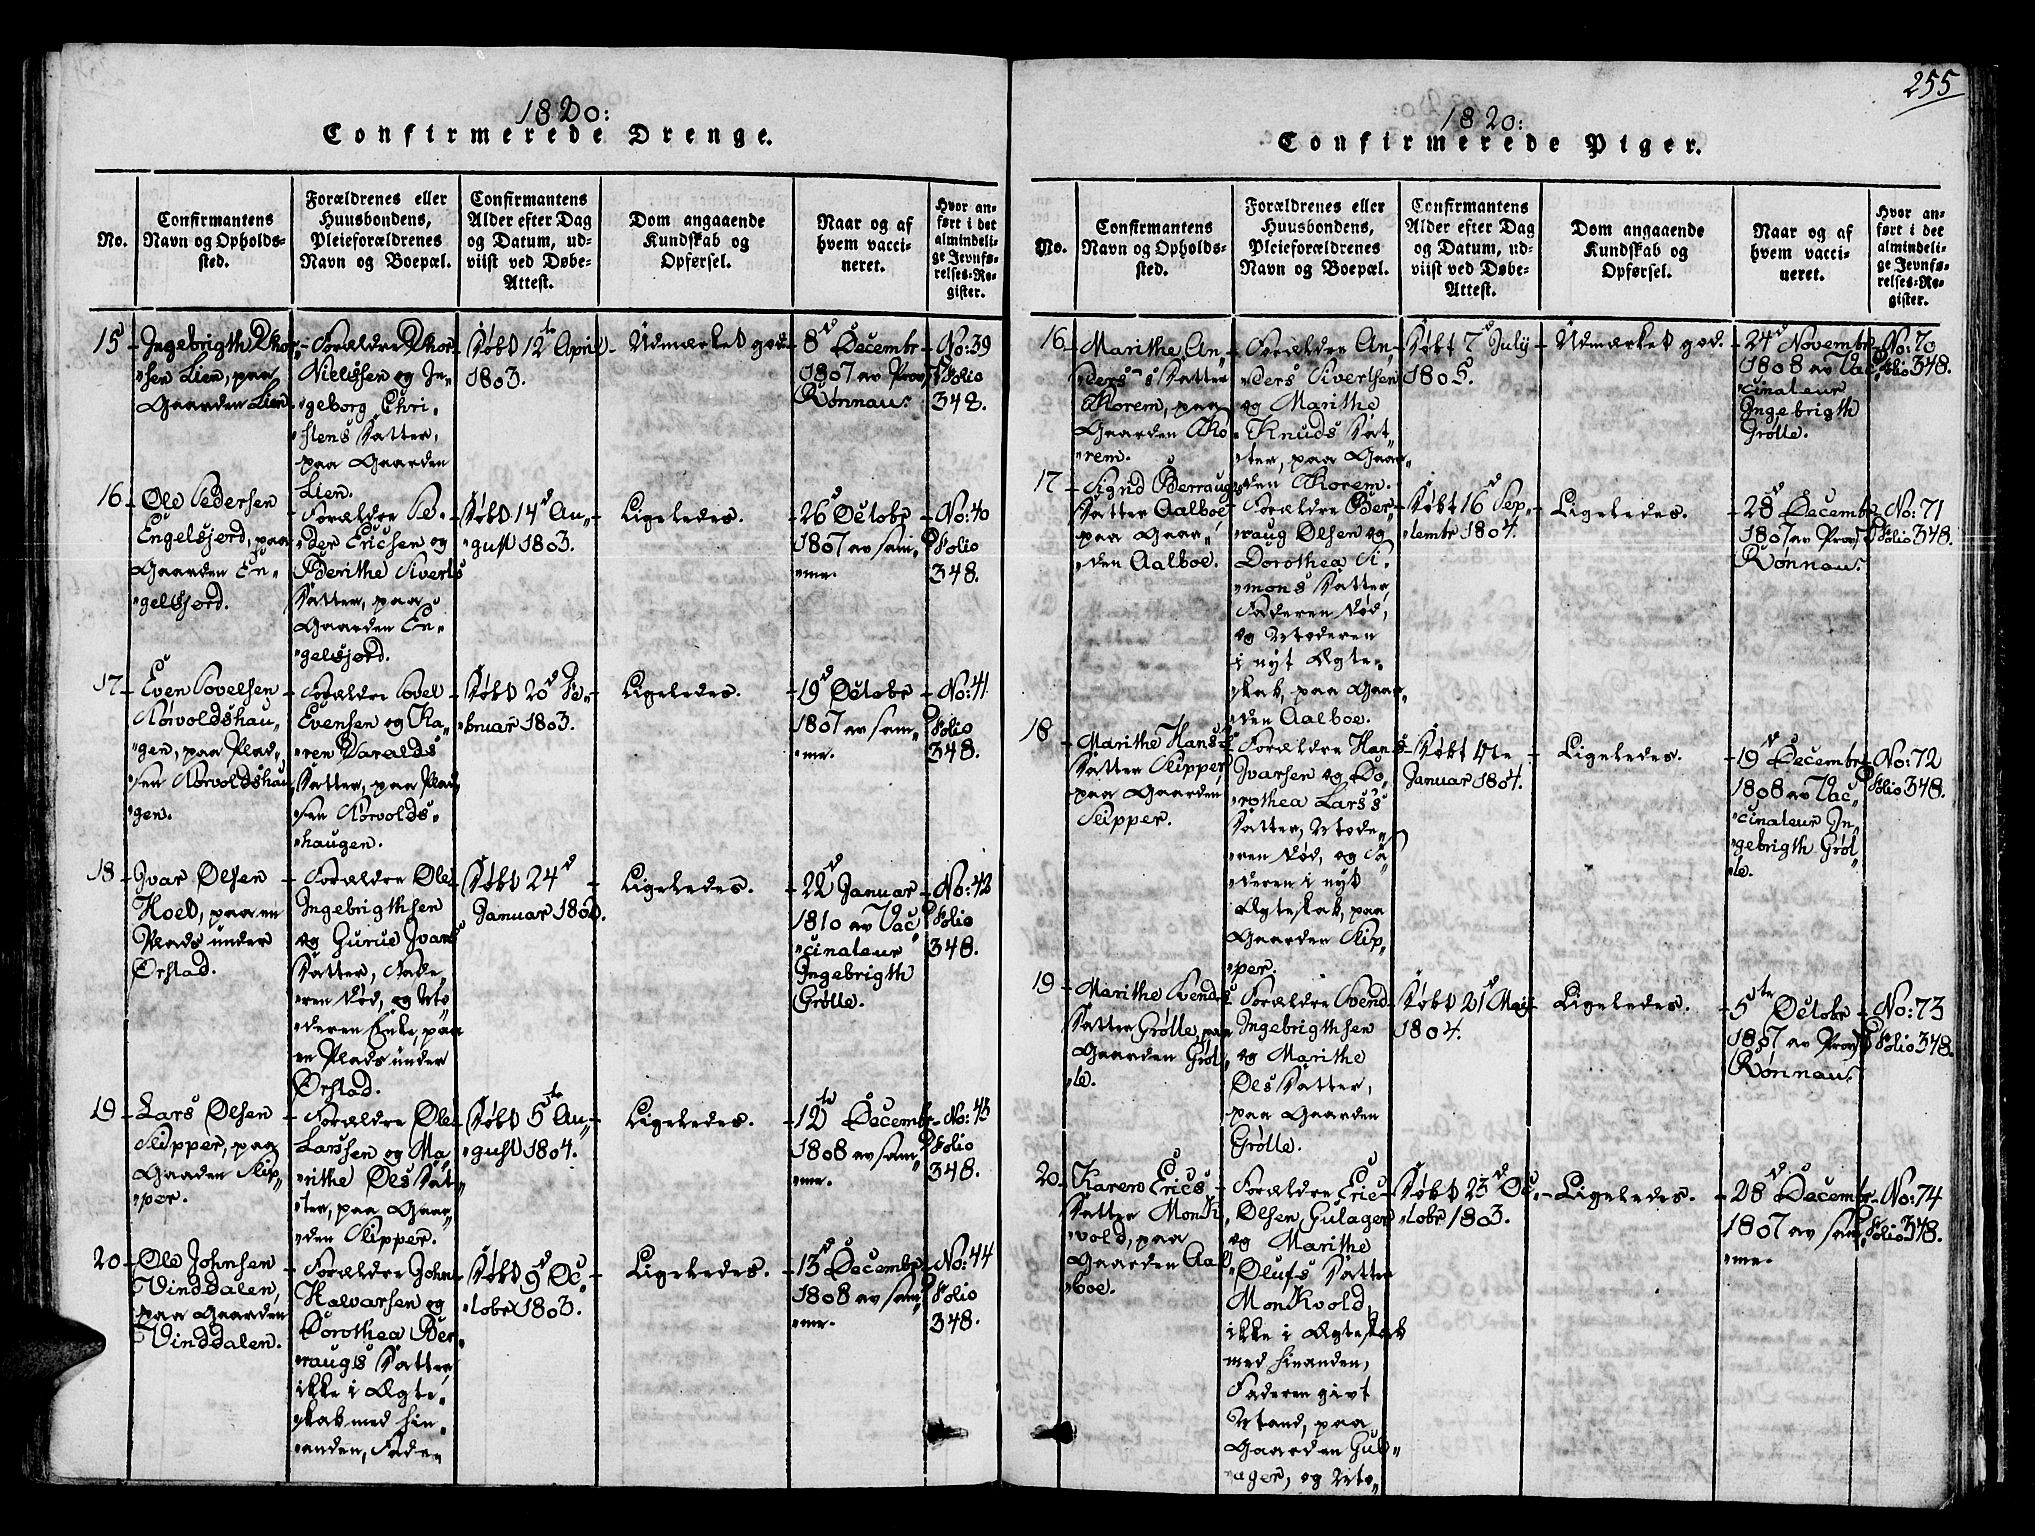 1820:
Confirmerede Drenge.
No.
Confirmantens
Navn og Opholds-
sted.
Forældrenes eller
Huusbondens,
Pleieforældrenes
Navn og Boepæl.
Confirmantens
Alder efter Dag
og Datum, ud-
viist ved Døbe-
Attest.
Dom angaaende
Kundskab og
Opførsel.
Naar og af
hvem vacci-
neret.
Hvor an-
ført i det
almindeli-
ge Jevnfø-
relses-Re-
gister.
15 Ingebrigth Thor-
sen Lien, paa
Gaarden Lien.
Forældre Thor
Nielssen og In-
geborg Chri-
stens Datter,
paa Gaarden
Lien.
Døbt 12te April
1803.
Udmærket god.
8d Decembr
1807 av Provst
Rønnau.
No: 39
Folio
348.
16 Ole Pedersen
Engelsjord, paa
Gaarden En-
gelsjord.
Forældre Pe-
der Ericsen og
Berithe Siverts
Datter, paa
Gaarden En-
gelsjord.
Døbt 14d Au-
gust 1803.
Ligeledes.
26d Octobr
1807 av sam-
me.
No: 40
Folio
348.
17 Even Povelsen
Nørvoldshau-
gen, paa Plad-
sen Nørvoldshau-
gen.
Forældre Povel
Evensen og Ka-
ren Haralds
Datter, paa Plad-
sen Nørvolds-
haugen.
Døbt 20d Fe-
bruar 1803.
Ligeledes.
19d Octobr
1807 av sam-
me.
No: 41
Folio
348.
18 Ivar Olsen
Hoel, paa en
Plads under
Ørstad.
Forældre Ole
Ingebrigthsen
og Gurue Ivars
Datter, Fade-
ren død, og Mo-
deren Enke, paa
en Plads under
Ørstad.
Døbt 24d
Januar
Ligeledes.
22d Januar
1810 av Vac-
cinateur
Ingebrigth
Grølle.
No: 42
Folio
348.
19 Lars Olsen
Slipper, paa
Gaaden Slip-
per.
Forældre Ole
Larssen og Ma-
rithe Ols Dat-
ter, paa Gaar-
den Slipper.
Døbt 5te Au-
gust 1804.
Ligeledes.
12te Decembr
1808 av sam-
me.
No: 43
Folio
348.
20 Ole Johnsen
Vinddalen,
paa Gaarden
Vinddalen.
Forældre John
Halvarsen og
Dorothea Ber-
raugs Datter,
ikke i Ægte-
skab med hin-
anden, Fade-
Døbt 9d Oc-
tobr 1803.
Ligeledes.
13d Decembr
1808 av sam-
me.
No: 44
Folio
348.
255
1820:
Confirmerede Piger.
No.
Confirmantens
Navn og Opholds-
sted.
Forældrenes eller
Huusbondens,
Pleieforældrenes
Navn og Boepæl.
Confirmantens
Alder efter Dag
og Datum, ud-
viist ved Døbe-
Attest.
Dom angaaende
Kundskab og
Opførsel.
Naar og af
hvem vacci-
neret.
Hvor an-
ført i det
almindeli-
ge Jevnfø-
relses-Re-
gister.
16 Marithe An-
ders's Datter
Thorem, paa
Gaarden Tho-
rem.
Forældre An-
ders Sivertsen
og Marithe
Knuds Dat-
ter, paa Gaar-
den Thorem.
Døbt 7d July
1805.
Udmærket god.
24d Novembr
1808 av Vac-
cinateur
Ingebrigth
Grølle.
No: 70
Folio 348.
17 Sigrid Berraugs
Datter Aalboe
paa Gaar-
den Aalboe.
Forældre Ber-
raug Olsen og
Dorothea Si-
mons Datter,
Faderen død,
og Moderen
i nyt Ægte-
skab, paa Gaar-
den Aalboe.
Døbt 16d Sep-
tembr 1804.
Ligeledes.
28d Decembr
1807 av Provst
Rønnau.
No: 71
Folio 348.
18 Marithe Hans's
Datter Slipper,
paa Gaarden
Slipper.
Forældre Hans
Ivarsen og Do-
rothea Lars's
Datter, Mode-
ren død, og Fa-
deren i nyt
Ægteskab, paa
Gaarden Slip-
per.
Døbt
Januar 1804.
Ligeledes.
19d Decembr
1808 av Vac-
cinateur In-
gebrigth Grøl-
le.
No: 72
Folio 348.
19 Marithe Svends
Datter Grølle, paa
Gaarden Grøl-
le.
Forældre Svend
Ingebrigthsen
og Marithe
Ols Datter,
paa Gaarden
Grølle.
Døbt 21d May
1804.
Ligeledes.
5te Octobr
1807 av Provst
Rønnau.
No: 73
Folio 348.
20 Karen Erics
Datter Monk-
vold, paa
Gaarden Aal-
boe.
Forældre Eric
Olsen Gulager
og Marithe
Olufs Datter
Monkvold,
ikke i Ægteskab
med hinanden,
Faderen givt
Mand, paa
Gaarden Gul-
ager, og Mo-
Døbt 23d Oc-
tobr 1803.
Ligeledes.
28d Decembr
1807 av sam-
me.
No: 74
Folio 348.